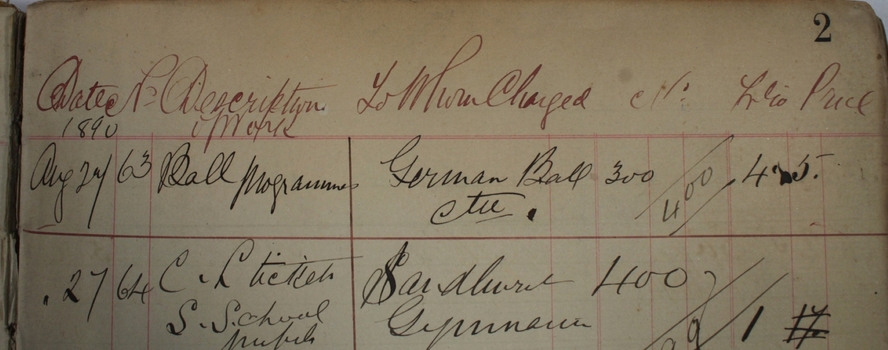 2
Date No Description To Whom Charged No Folio Price
1890 of Work
Aug 27 63 Ball programmes German Ball 300 400 4 5
Ctee.
27 64 C. L tickets Sandhurst 400
S. School Gymnasium 99 1